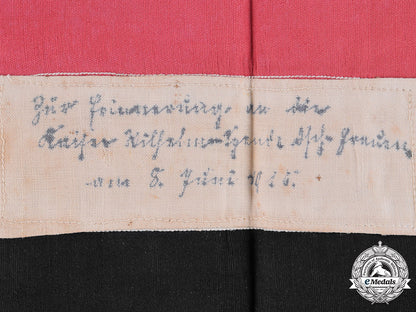 Zur Erinnerung an die
Kaiser Wilhelm-Spende dtsch. Frauen
am 8. Juni
eMedals